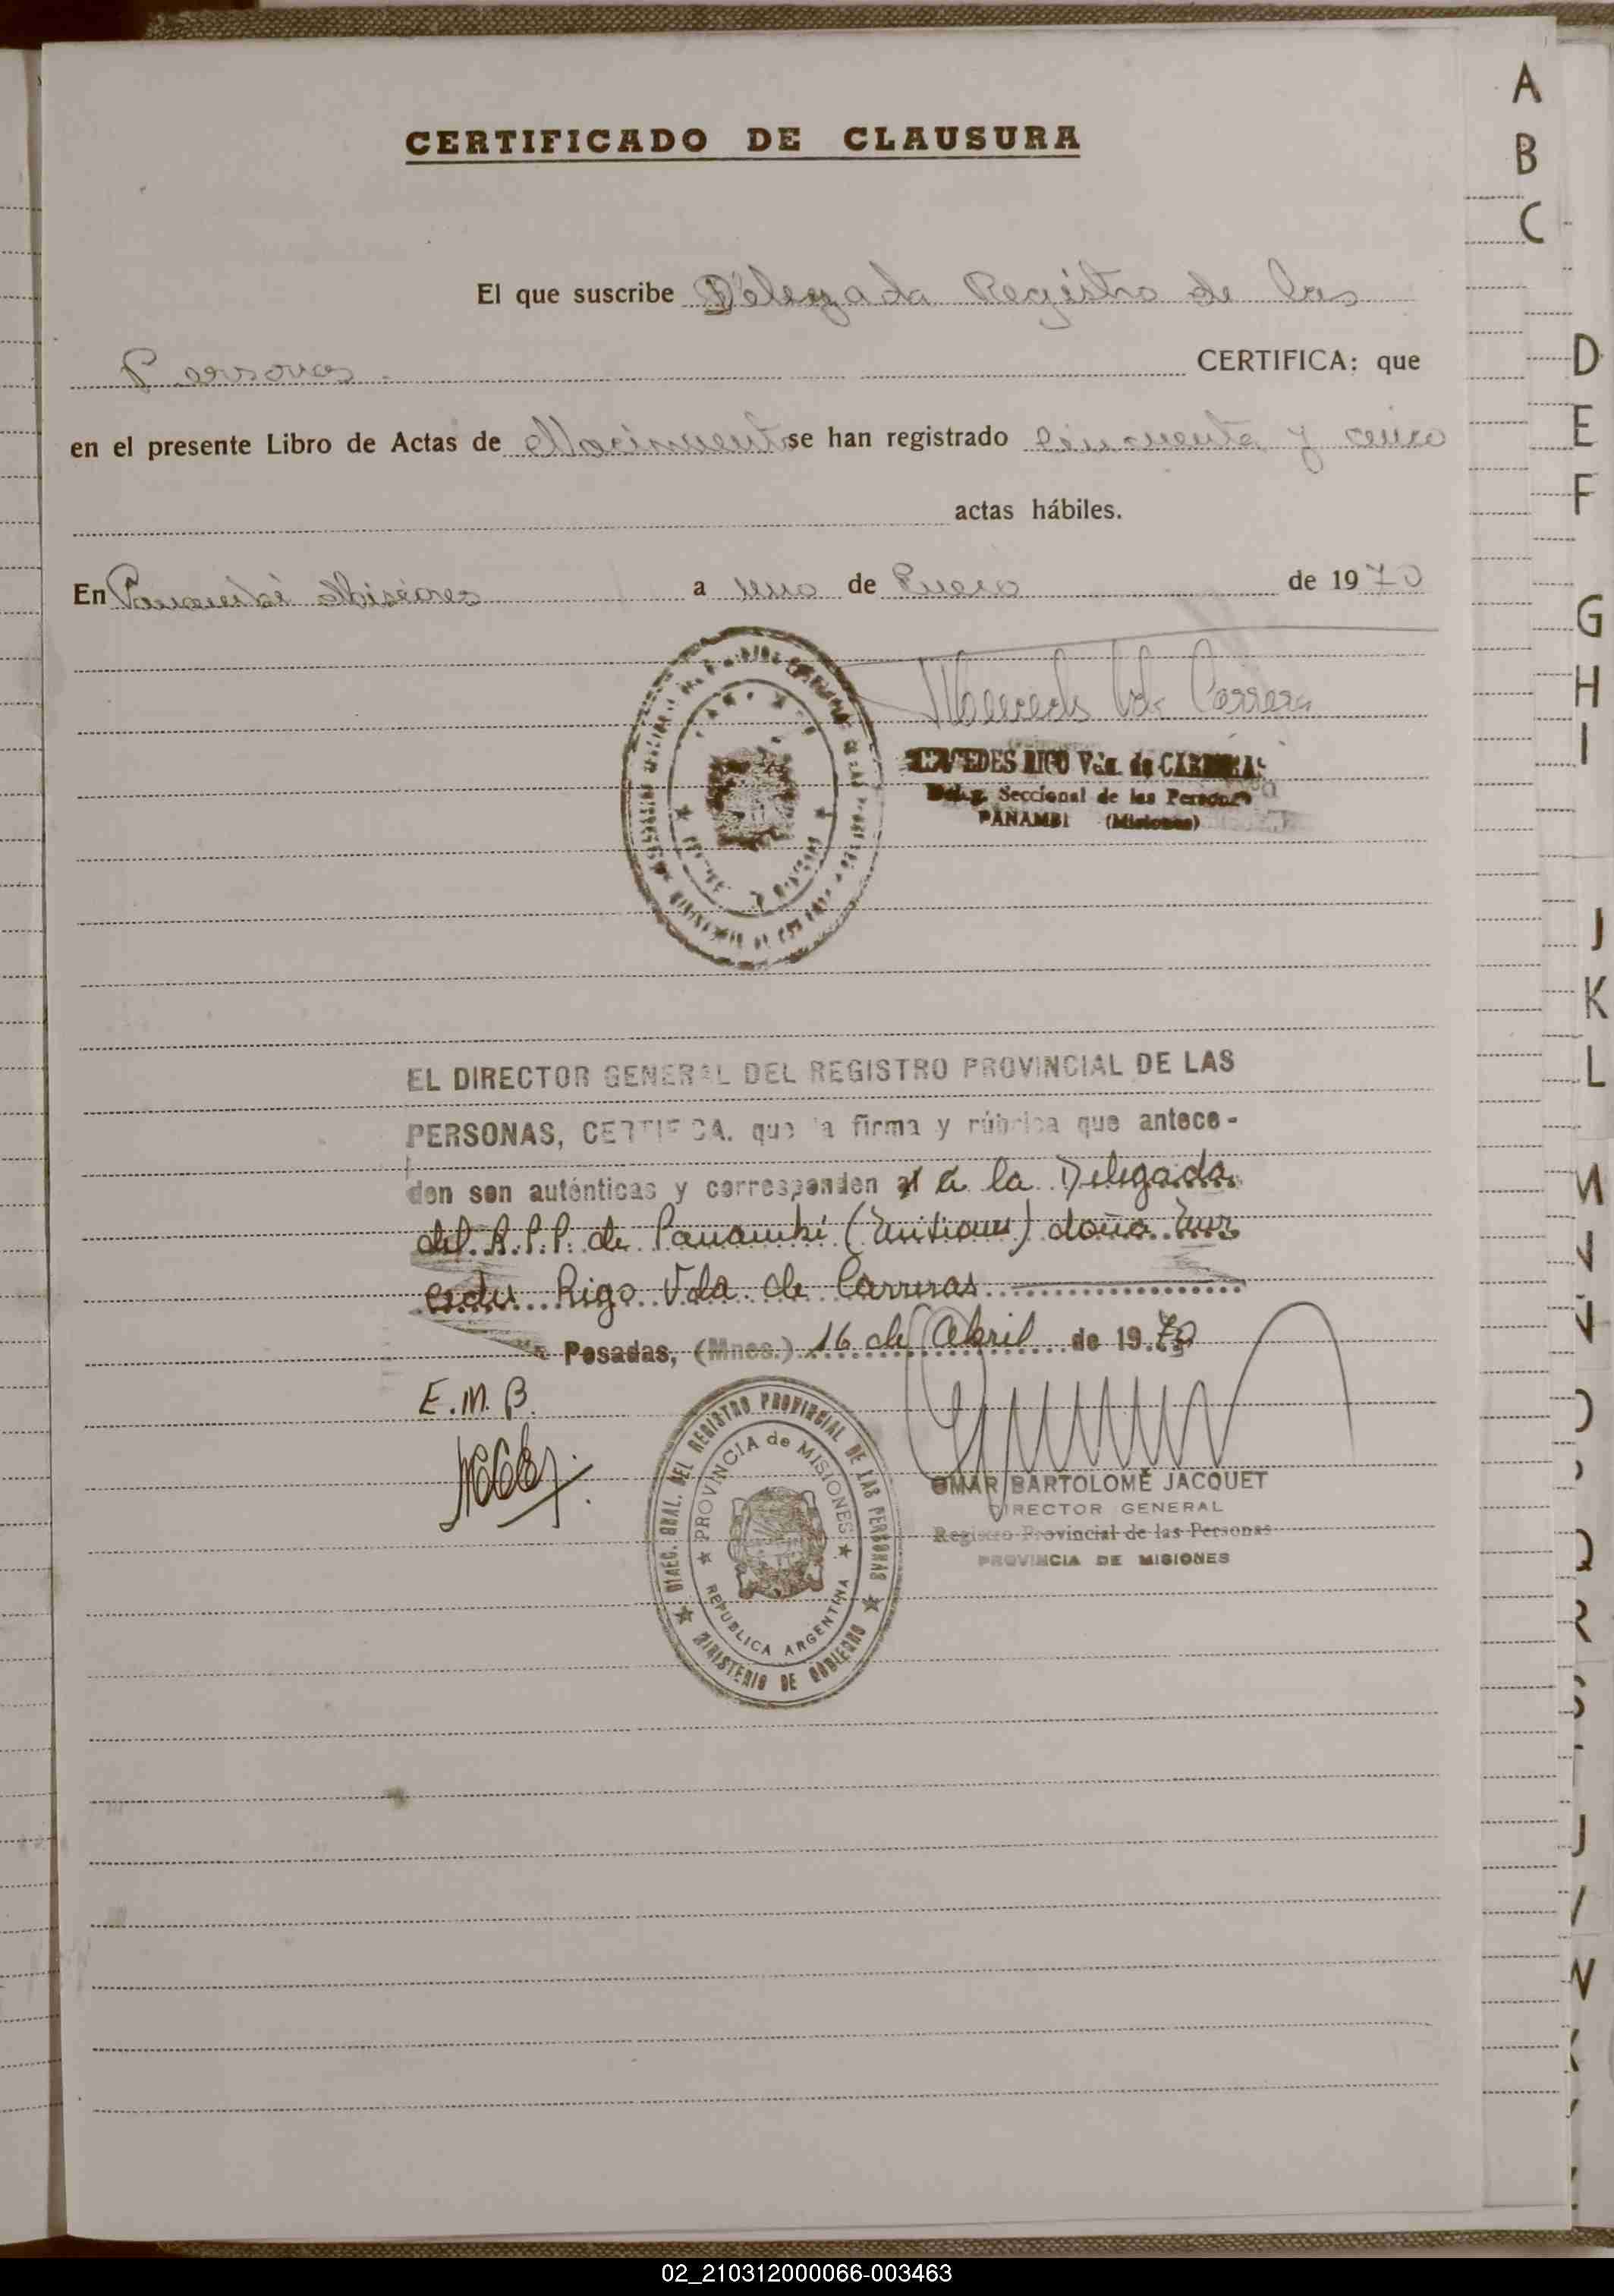 CERTIFICADO DE CLAUSURA
El que suscribe Delegada Registro de las
Personas. CERTIFICA: que
en el presente Libro de Actas de Nacimiento se han registrado cincuenta y cinco
actas hábiles.
En Panambí Misiones a uno de Enero de 1970
Mercedes Vda Carrera
RIGO Vda. de CARRERAS
Seccional de las Personas
PANAMBI (Misiones)
EL DIRECTOR GENERAL DEL REGISTRO PROVINCIAL DE LAS
PERSONAS, CERTIFICA. que la firma y rúbrica que antece-
den son auténticas y corresponden al a la Delegada
del R.P.P. de Panambí (Misiones) doña Mer
cedes Rigo Vda de Carreras
Posadas, (Mnes.) 16 de Abril de 1970
E.M.B.
DIREC. GRAL. DEL REGISTRO PROVINCIAL DE LAS PERSONAS
PROVINCIA de MISIONES
REPUBLICA ARGENTINA
MINISTERIO DE GOBIERNO
OMAR BARTOLOMÉ JACQUET
DIRECTOR GENERAL
Registro Provincial de las Personas
PROVINCIA DE MISIONES
A
B
C
D
E
F
G
H
I
J
K
L
M
N
Ñ
O
P
Q
R
S
T
U
V
W
X
02_210312000066-003463